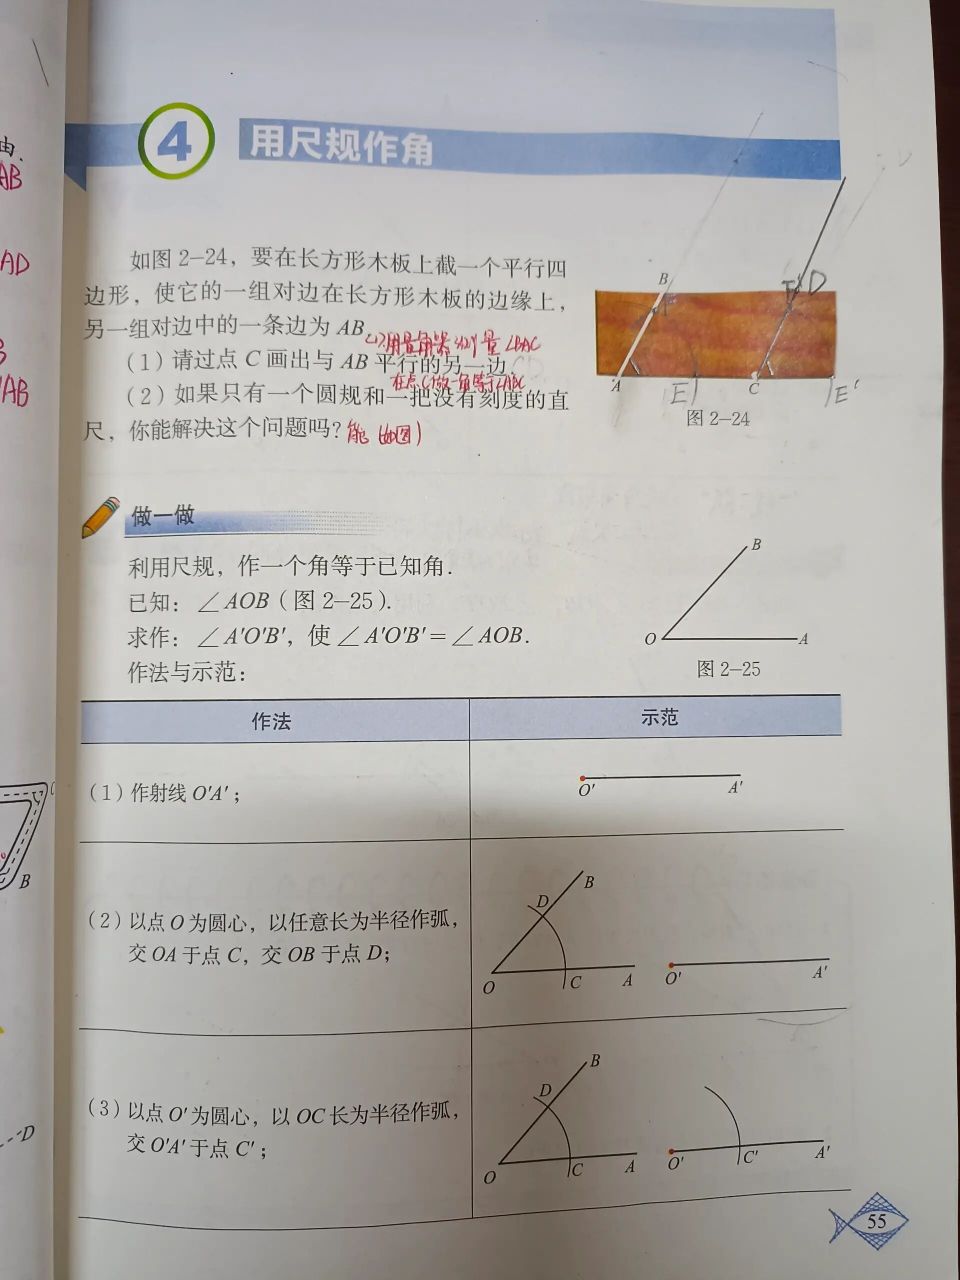 由.
AB
AD
AB
4 用尺规作角
如图 2-24，要在长方形木板上截一个平行四
边形，使它的一组对边在长方形木板的边缘上，
另一组对边中的一条边为 AB.
(1)用量角器测量∠BAC
(1) 请过点 C 画出与 AB 平行的另一边
在点C做一角等于∠ABC
(2) 如果只有一个圆规和一把没有刻度的直
尺，你能解决这个问题吗？能(如图)
B
F
D
A
E
C
E'
图 2-24
做一做
利用尺规，作一个角等于已知角.
已知：∠AOB (图 2-25).
求作：∠A'O'B'，使 ∠A'O'B' = ∠AOB.
作法与示范：
B
O
A
图 2-25
作法
示范
(1) 作射线 O'A'；
O' A'
(2) 以点 O 为圆心，以任意长为半径作弧，
交 OA 于点 C，交 OB 于点 D；
B
D
O C A O' A'
(3) 以点 O' 为圆心，以 OC 长为半径作弧，
交 O'A' 于点 C'；
B
D
O C A O' C' A'
B
D
55